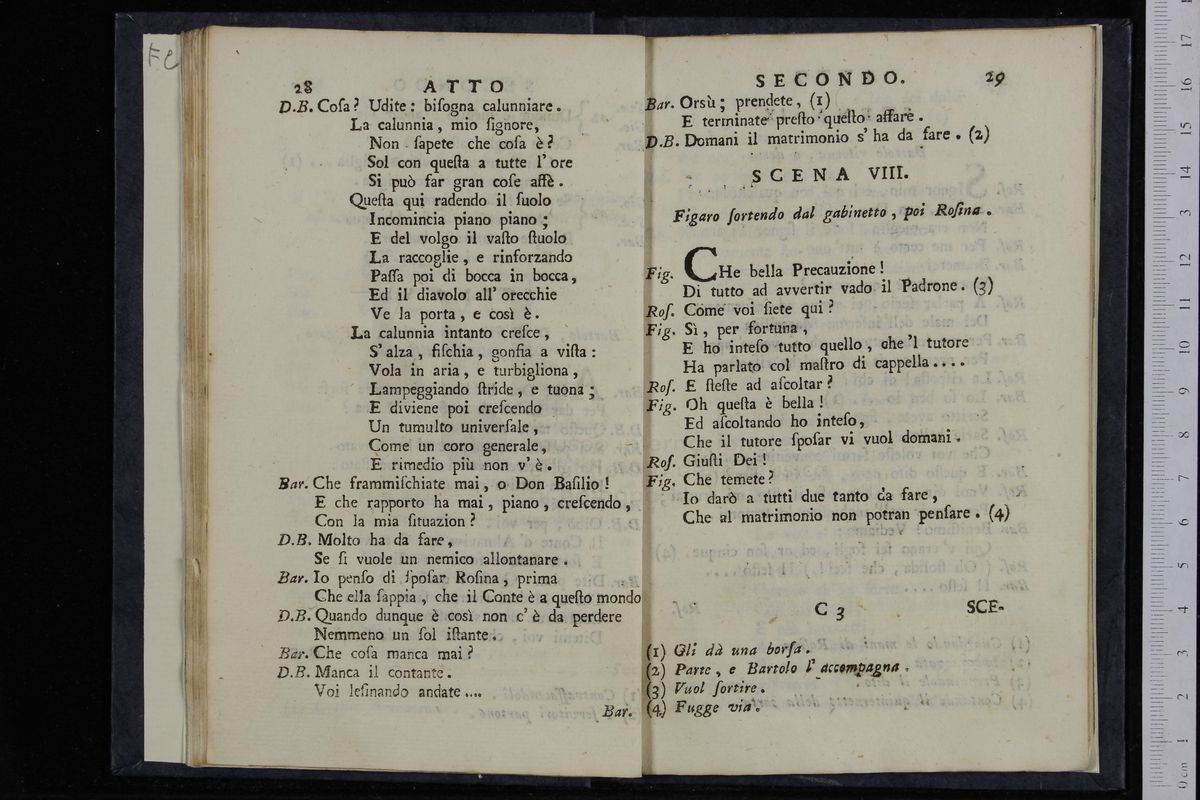 Fe
28 ATTO
D.B. Coſa? Udite: biſogna calunniare.
La calunnia, mio ſignore,
Non ſapete che coſa è?
Sol con queſta a tutte l' ore
Si può far gran coſe affè.
Queſta qui radendo il ſuolo
Incomincia piano piano;
E del volgo il vaſto ſtuolo
La raccoglie, e rinforzando
Paſſa poi di bocca in bocca,
Ed il diavolo all' orecchie
Ve la porta, e così è.
La calunnia intanto creſce,
S' alza, fiſchia, gonfia a viſta:
Vola in aria, e turbigliona,
Lampeggiando ſtride, e tuona;
E diviene poi creſcendo
Un tumulto univerſale,
Come un coro generale,
E rimedio più non v' è.
Bar. Che frammiſchiate mai, o Don Baſilio!
E che rapporto ha mai, piano, creſcendo,
Con la mia ſituazion?
D.B. Molto ha da fare,
Se ſi vuole un nemico allontanare.
Bar. Io penſo di ſpoſar Roſina, prima
Che ella ſappia, che il Conte è a queſto mondo
D.B. Quando dunque è così non c' è da perdere
Nemmeno un ſol iſtante.
Bar. Che coſa manca mai?
D.B. Manca il contante.
Voi leſinando andate ....
Bar.
SECONDO. 29
Bar. Orsù; prendete, (1)
E terminate preſto queſto affare.
D.B. Domani il matrimonio s' ha da fare. (2)
SCENA VIII.
Figaro ſortendo dal gabinetto, poi Roſina.
Fig. CHe bella Precauzione!
Di tutto ad avvertir vado il Padrone. (3)
Roſ. Come voi ſiete qui?
Fig. Sì, per fortuna,
E ho inteſo tutto quello, che 'l tutore
Ha parlato col maſtro di cappella....
Roſ. E ſteſte ad aſcoltar?
Fig. Oh queſta è bella!
Ed aſcoltando ho inteſo,
Che il tutore ſpoſar vi vuol domani.
Roſ. Giuſti Dei!
Fig. Che temete?
Io darò a tutti due tanto da fare,
Che al matrimonio non potran penſare. (4)
C 3 SCE-
(1) Gli dà una borſa.
(2) Parte, e Bartolo l' accompagna.
(3) Vuol ſortire.
(4) Fugge via.
0 cm 1 2 3 4 5 6 7 8 9 10 11 12 13 14 15 16 17